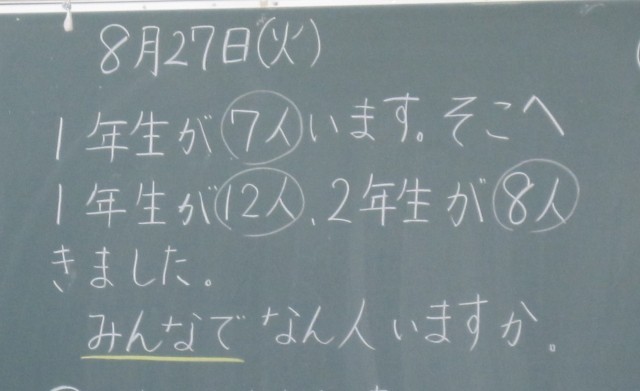 8月27日(火)
1年生が7人います。そこへ
1年生が12人、2年生が8人
きました。
みんなでなん人いますか。